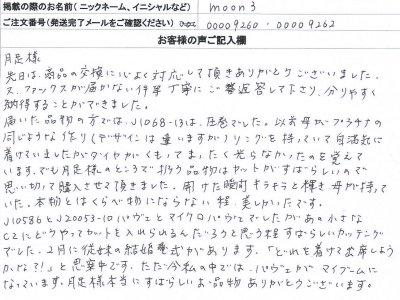 掲載の際のお名前(ニックネーム、イニシャルなど) moon3
ご注文番号(発送完了メールをご確認ください) 00009260・00009262
お客様の声ご記入欄
月足様
先日は、商品の交換に心よく対応して頂きありがとうございました。
又、ファックスが届かない件等丁寧にご返答して下さり、分りやすく
納得することができました。
届いた品物の方ではJ1068-13は、圧巻でした。以前母がプラチナの
同じような作り(デザインは違いますが)リングを持っていて自満気に
着けていましたがダイヤがくもってまったく光らなかったのを覚えて
います。でも月足様のところで扱う品物はカットがすばらしいので
思い切って購入させて頂きました。開けた瞬間キラキラと輝き母が持って
いた、本物とはくらべ物にならない程、美しかったです。
J10586とJ20053-10パヴェとマイクロパヴェでしたがあの小さな
CZにどうやってカットを入れられるんだろうと思う程すばらしいカッティング
でした。2月に従妹の結婚式があります。「どれを着けて出席しよう
かな?!」と思案中です。ただ今私の中では、パヴェがマイブームに
なっています。月足様本当にすばらしいお品物ありがとうございます。